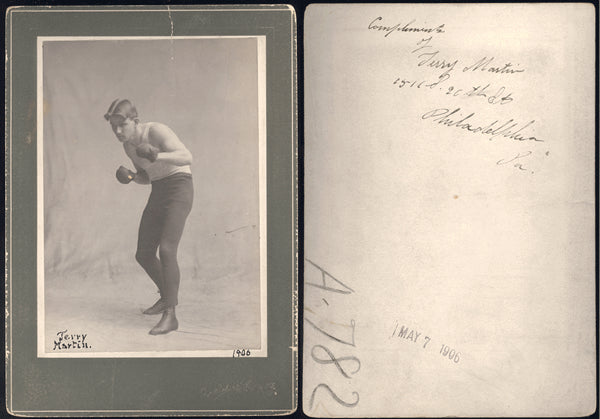 Terry
Martin.
1906
Compliments
of
Terry Martin
1516 S. 20th St
Philadelphia
Pa.
A.782
MAY 7 1906